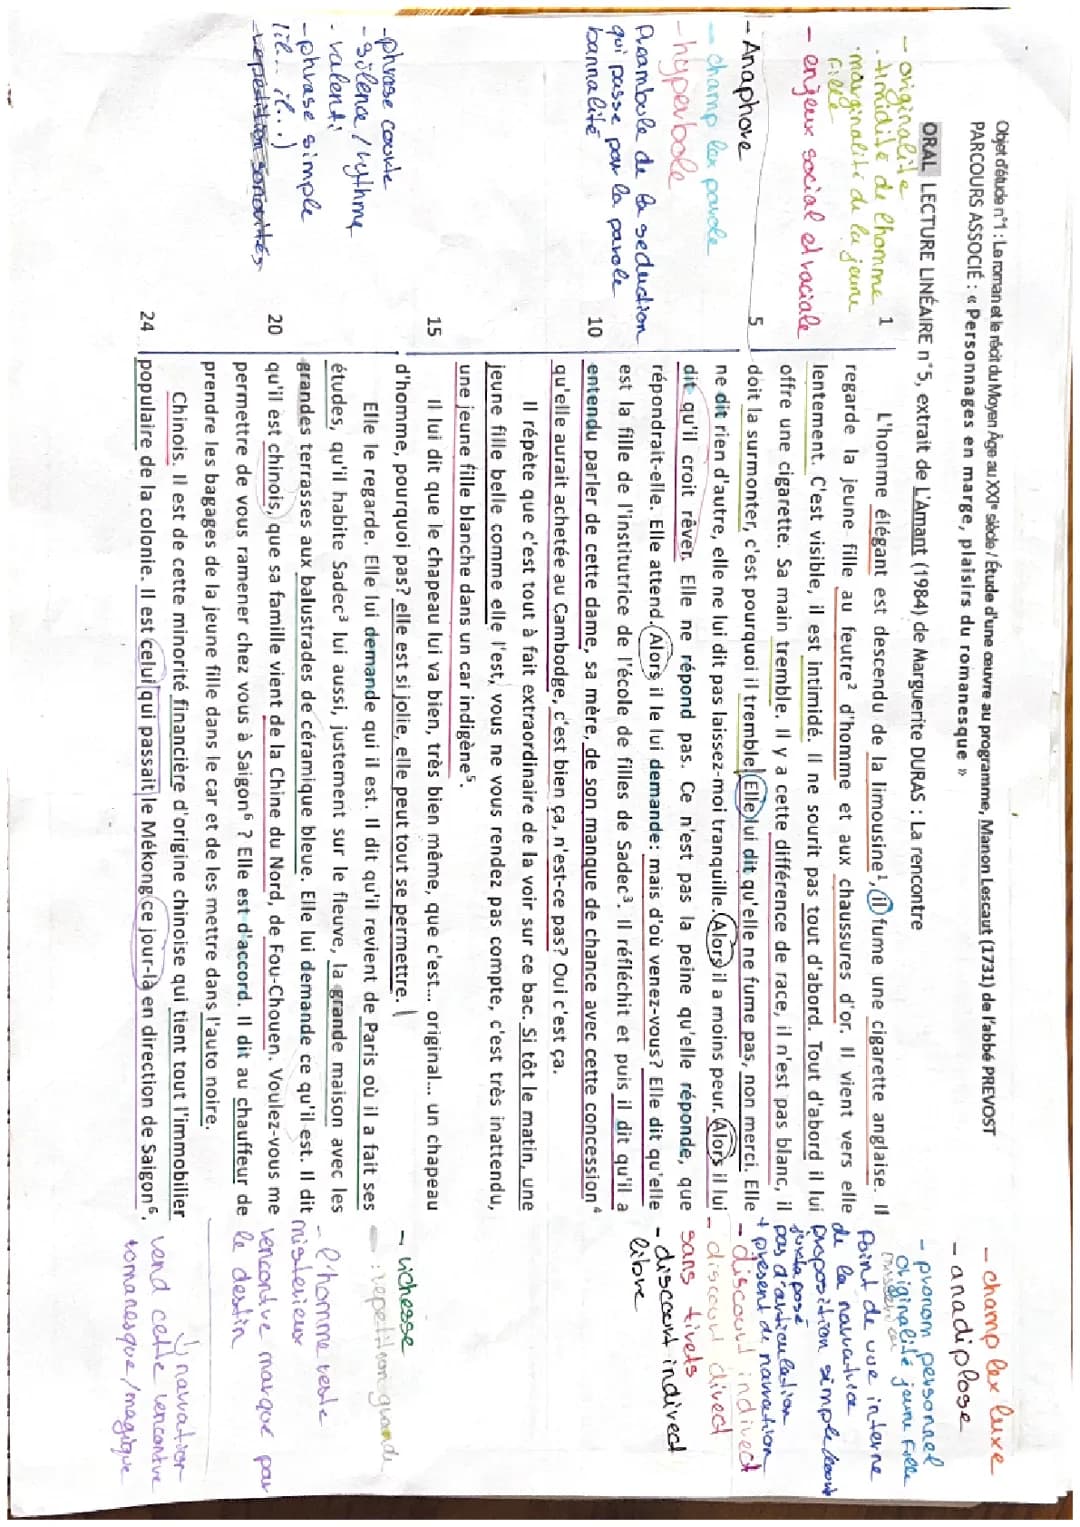 Objet d'étude n°1 : Le roman et le récit du Moyen Âge au XXIe siècle / Étude d'une œuvre au programme, Manon Lescaut (1731) de l'abbé PREVOST
PARCOURS ASSOCIÉ : « Personnages en marge, plaisirs du romanesque »
ORAL LECTURE LINÉAIRE n°5, extrait de L'Amant (1984) de Marguerite DURAS : La rencontre
1 L'homme élégant est descendu de la limousine¹, il fume une cigarette anglaise. Il
regarde la jeune fille au feutre² d'homme et aux chaussures d'or. Il vient vers elle
lentement. C'est visible, il est intimidé. Il ne sourit pas tout d'abord. Tout d'abord il lui
offre une cigarette. Sa main tremble. Il y a cette différence de race, il n'est pas blanc, il
5 doit la surmonter, c'est pourquoi il tremble. Elle lui dit qu'elle ne fume pas, non merci. Elle
ne dit rien d'autre, elle ne lui dit pas laissez-moi tranquille. Alors il a moins peur. Alors il lui
dit qu'il croit rêver. Elle ne répond pas. Ce n'est pas la peine qu'elle réponde, que
répondrait-elle. Elle attend. Alors il le lui demande: mais d'où venez-vous? Elle dit qu'elle
est la fille de l'institutrice de l'école de filles de Sadec³. Il réfléchit et puis il dit qu'il a
10 entendu parler de cette dame, sa mère, de son manque de chance avec cette concession⁴
qu'elle aurait achetée au Cambodge, c'est bien ça, n'est-ce pas? Oui c'est ça.
Il répète que c'est tout à fait extraordinaire de la voir sur ce bac. Si tôt le matin, une
jeune fille belle comme elle l'est, vous ne vous rendez pas compte, c'est très inattendu,
une jeune fille blanche dans un car indigène⁵.
15 Il lui dit que le chapeau lui va bien, très bien même, que c'est... original... un chapeau
d'homme, pourquoi pas? elle est si jolie, elle peut tout se permettre.
Elle le regarde. Elle lui demande qui il est. Il dit qu'il revient de Paris où il a fait ses
études, qu'il habite Sadec³ lui aussi, justement sur le fleuve, la grande maison avec les
grandes terrasses aux balustrades de céramique bleue. Elle lui demande ce qu'il est. Il dit
20 qu'il est chinois, que sa famille vient de la Chine du Nord, de Fou-Chouen. Voulez-vous me
permettre de vous ramener chez vous à Saigon⁶ ? Elle est d'accord. Il dit au chauffeur de
prendre les bagages de la jeune fille dans le car et de les mettre dans l'auto noire.
Chinois. Il est de cette minorité financière d'origine chinoise qui tient tout l'immobilier
24 populaire de la colonie. Il est celui qui passait le Mékong ce jour-là en direction de Saigon⁶.
- originalité
. timidité de l'homme
. marginalité de la jeune
fille
- enjeux social et raciale
- Anaphore
- champ lex parole
- hyperbole
Préambule de la seduction
qui passe par la parole
bannalité
- phrase courte
- silence / rythme
. valenti
- phrase simple
(il... il...)
repetition sonorités
- champ lex luxe
- anadiplose
- pronom personnel
originalité jeune fille
Point de vue interne
de la narratrice
proposition simple/
juxtaposé
pas d'articulation
+ présent de narration
- discours indirect
- discours direct
sans tirets
- discours indirect
libre
- richesse
- : repetition grande
- l'homme reste
misterieux
rencontre marque par
le destin
↳ narration
rend cette rencontre
romanesque/magique